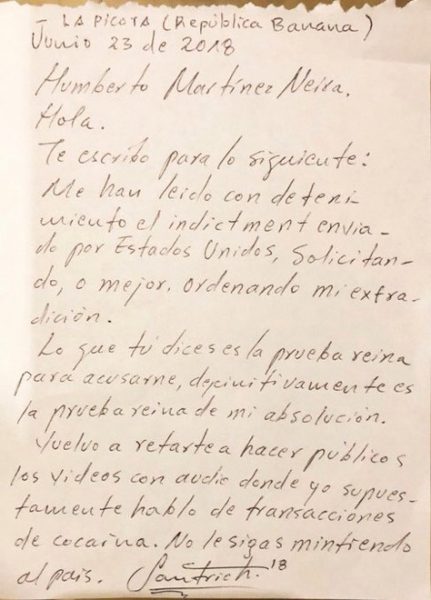 - LA PICOTA (República Banana)
Junio 23 de 2018
Humberto Martínez Neira.
Hola.
Te escribo para lo siguiente:
Me han leido con deteni-
miento el indictment envia-
do por Estados Unidos, Solicitan-
do, o mejor, ordenando mi extra-
dición.
Lo que tú dices es la prueba reina
para acusarme, definitivamente es
la prueba reina de mi absolución.
Vuelvo a retarte a hacer públicos
los videos con audio donde yo supues-
tamente hablo de transacciones
de cocaína. No le sigas mintiendo
al país. Santrich. '18